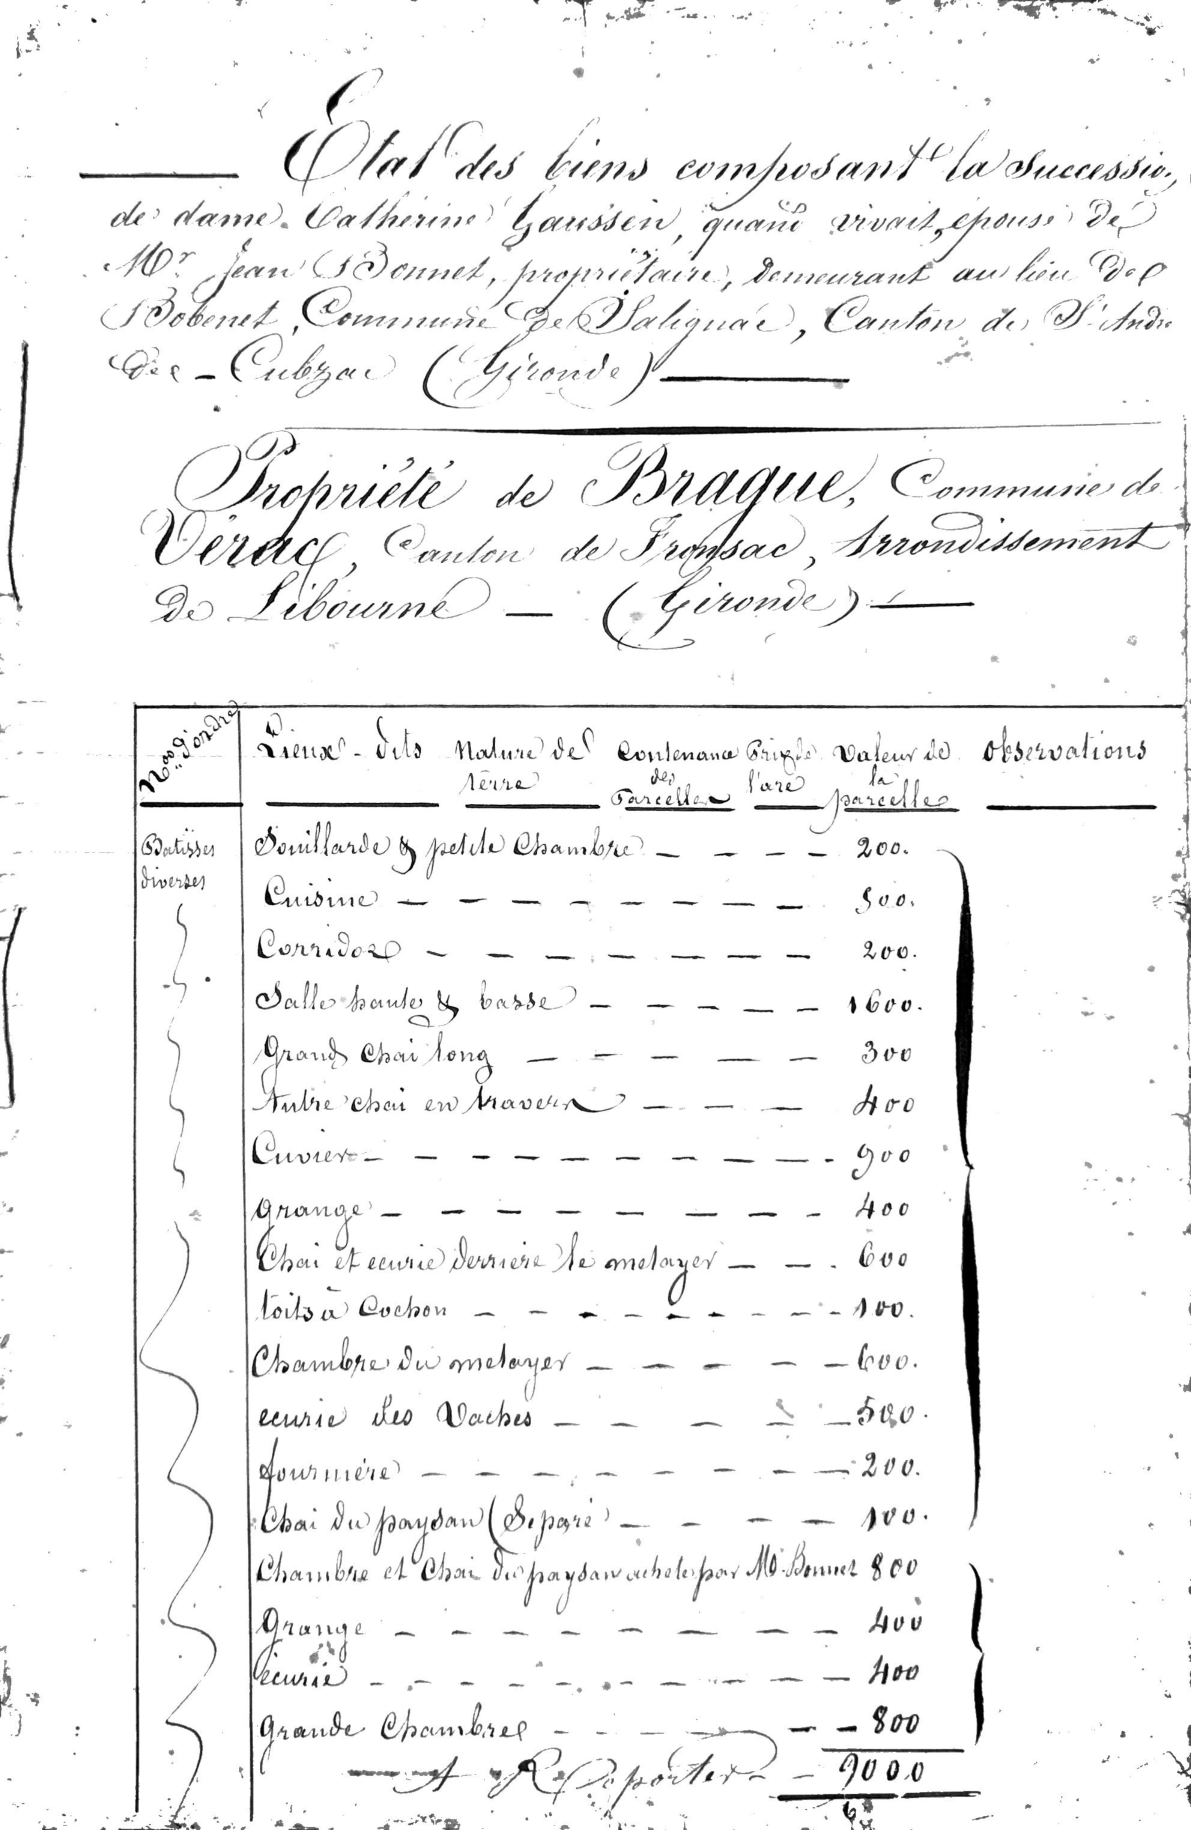 Etat des biens composant la succession,
de dame Catherine Gaussen, quand vivait, épouse de
Mr Jean Bonnet, propriétaire, demeurant au lieu de
Bobenet, Commune de Salignac, Canton de St André
de - Cubzac (Gironde)
Propriété de Brague, Commune de
Vérac, Canton de Fronsac, Arrondissement
de Libourne - (Gironde)
Nos d'ordre Lieux-dits Nature de terre Contenance des Parcelles Prix de l'are Valeur de la parcelle Observations
Batisses diverses Souillarde & petite Chambre - - - - 200.
Cuisine - - - - - - - - 500.
Corridor - - - - - - - 200.
Salle haute & basse - - - - - 1600.
Grand Chai long - - - - - 300
Autre chai en travers - - - 400
Cuvier - - - - - - - - - 900
Grange - - - - - - - - 400
Chai et ecurie derriere le metayer - - . 600
toits à Cochon - - - - - - - - 100.
Chambre du metayer - - - - - 600.
ecurie des Vaches - - - - - 500.
fourniére - - - - - - - - 200.
Chai du paysan (Separé - - - - 100.
Chambre et Chai du paysan acheté par Mr Bonnet 800
Grange - - - - - - - - 400
écurie - - - - - - - - - 400
Grande Chambre - - - - - - 800
A Reporter - - 9000